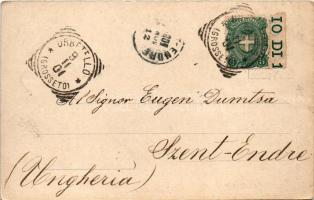 ORBETELLO
(GROSSETO)
ENDRE
IO DI 1
(GROSSE
Al Signor Eugen Dumtsa
Szent-Endre
(Ungheria)